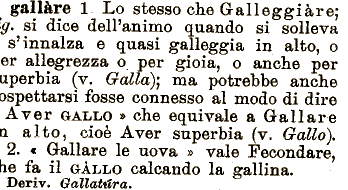 gallàre 1. Lo stesso che Galleggiàre;
fig. si dice dell'animo quando si solleva
s'innalza e quasi galleggia in alto, o
per allegrezza o per gioia, o anche per
superbia (v. Galla); ma potrebbe anche
sospettarsi fosse connesso al modo di dire
Aver GALLO » che equivale a Gallare
in alto, cioè Aver superbia (v. Gallo).
2. « Gallare le uova » vale Fecondare,
che fa il GÀLLO calcando la gallina.
Deriv. Gallatúra.